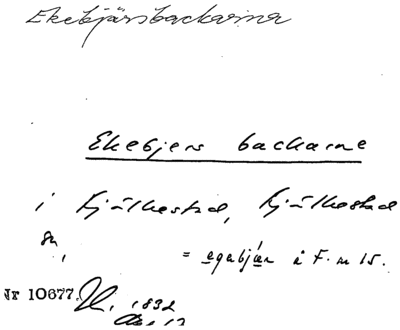 Ekebjärsbackarna
Ekebjers backarne
i Fjälkestad, Fjälkestad
sn,
= egabjär å F. m 15.
Nr 10677. 1832